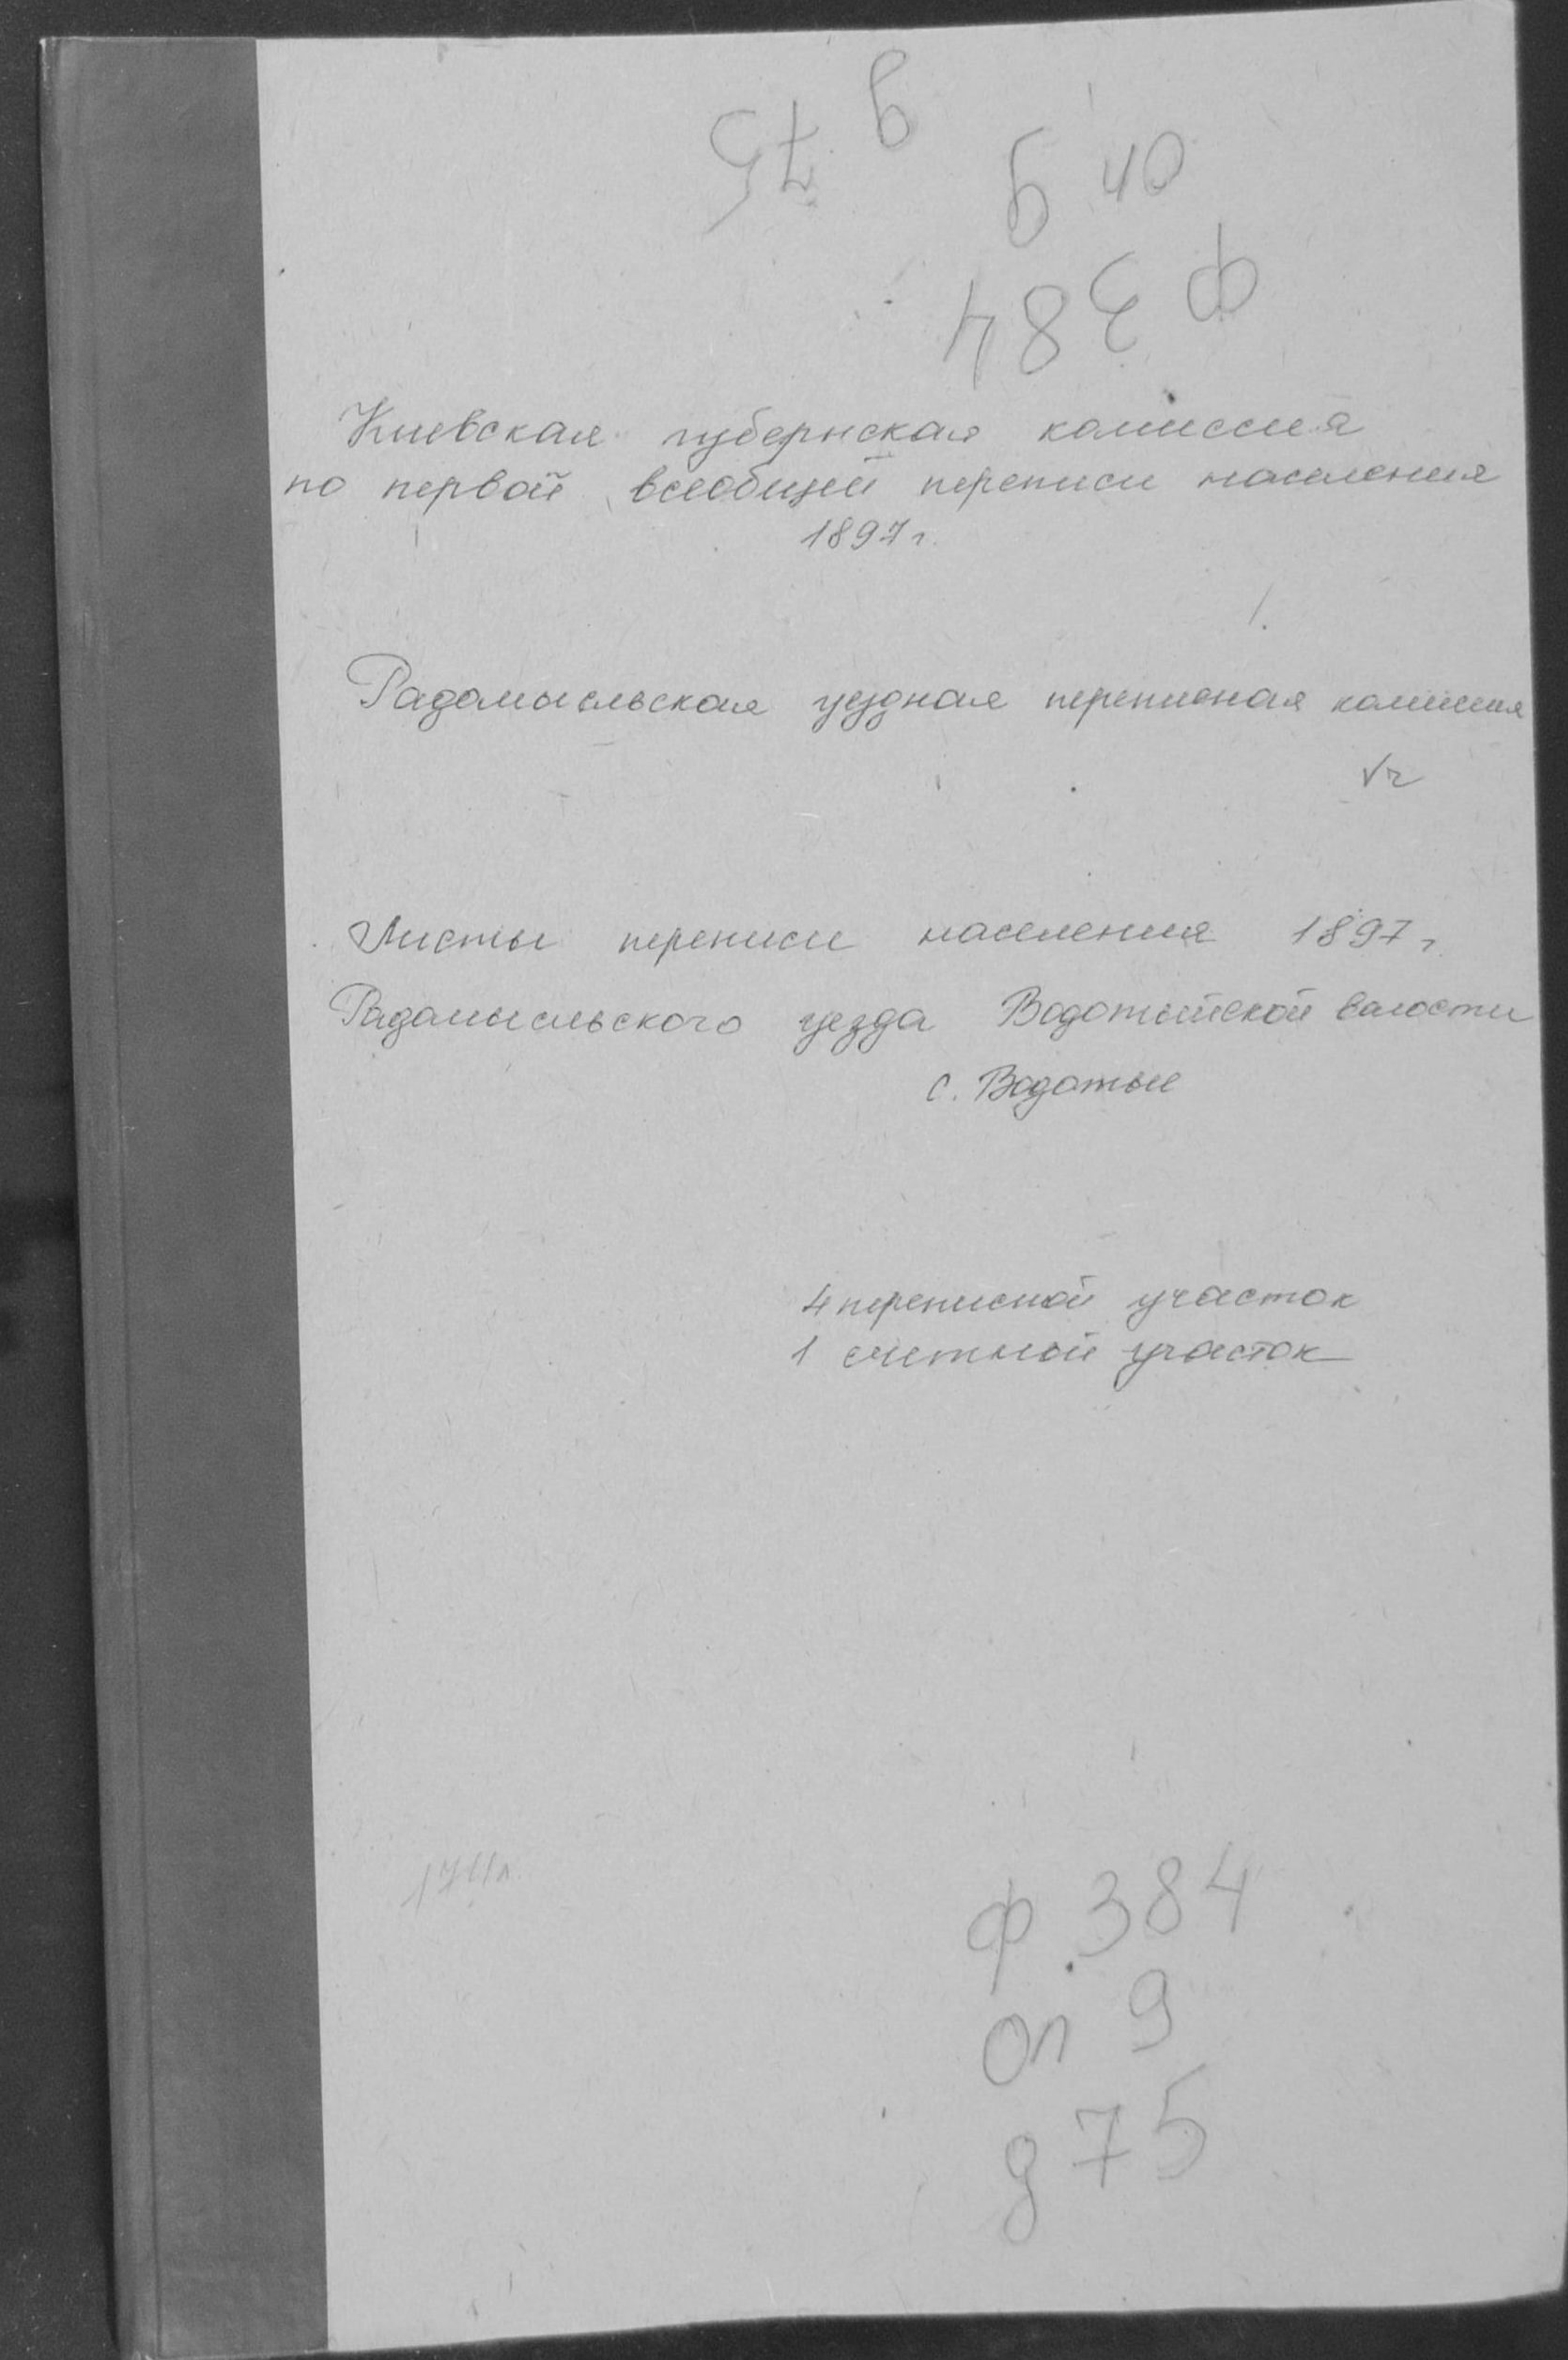 ф 384
оп 9
д 75
Киевская губернская комиссия
по первой всеобщей переписи населения
1897 г.
Радомысльская уездная переписная комиссия
Листы переписи населения 1897 г.
Радомысльского уезда Водотыйской волости
с. Водотые
4 переписной участок
1 счетный участок
ф. 384
Оп 9
д 75